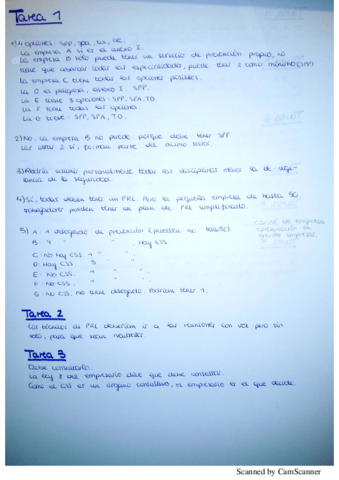 Tarea 1
1) 4 opciones SPP, SPA, TD,
La empresa A si es el anexo I.
La empresa B solo puede tener un servicio de prevención propio, no
tiene que abarcar todas las especialidades, puede tener 2 como mínimo
La empresa C tiene todas las opciones posibles.
La D es peligrosa, anexo I, SPP.
La E tiene 3 opciones: SPP, SPA, TD.
La F tiene todas las opciones
La G tiene: SPP, SPA, TD.
2) No. La empresa B no puede porque debe tener SPP
Las otras 2 sí, forman parte del mismo sector.
3) Podría asumir personalmente todas las disciplinas menos la de vigi-
lancia de la
4) Sí, todas deben tener un PRL. Pero la pequeña empresa de hasta 50
trabajadores pueden tener un plan de PRL simplificado.
5) A: 1 delegado de prevención (pueden no
B: " " Hay CSS
C: No hay CSS. 1 "
D: Hay CSS. 3 "
E: No CSS.
F: No CSS.
G: No CSS, no tiene delegado. Podrían tener 1.
Tarea 2
Los técnicos de PRL deberían ir a las reuniones con voz pero sin
voto, para que sean neutrales.
Tarea 3
Debe consultarlo.
La ley dice que debe consultar.
Como el CSS es un órgano consultivo, el empresario es el que decide.
Scanned by CamScanner